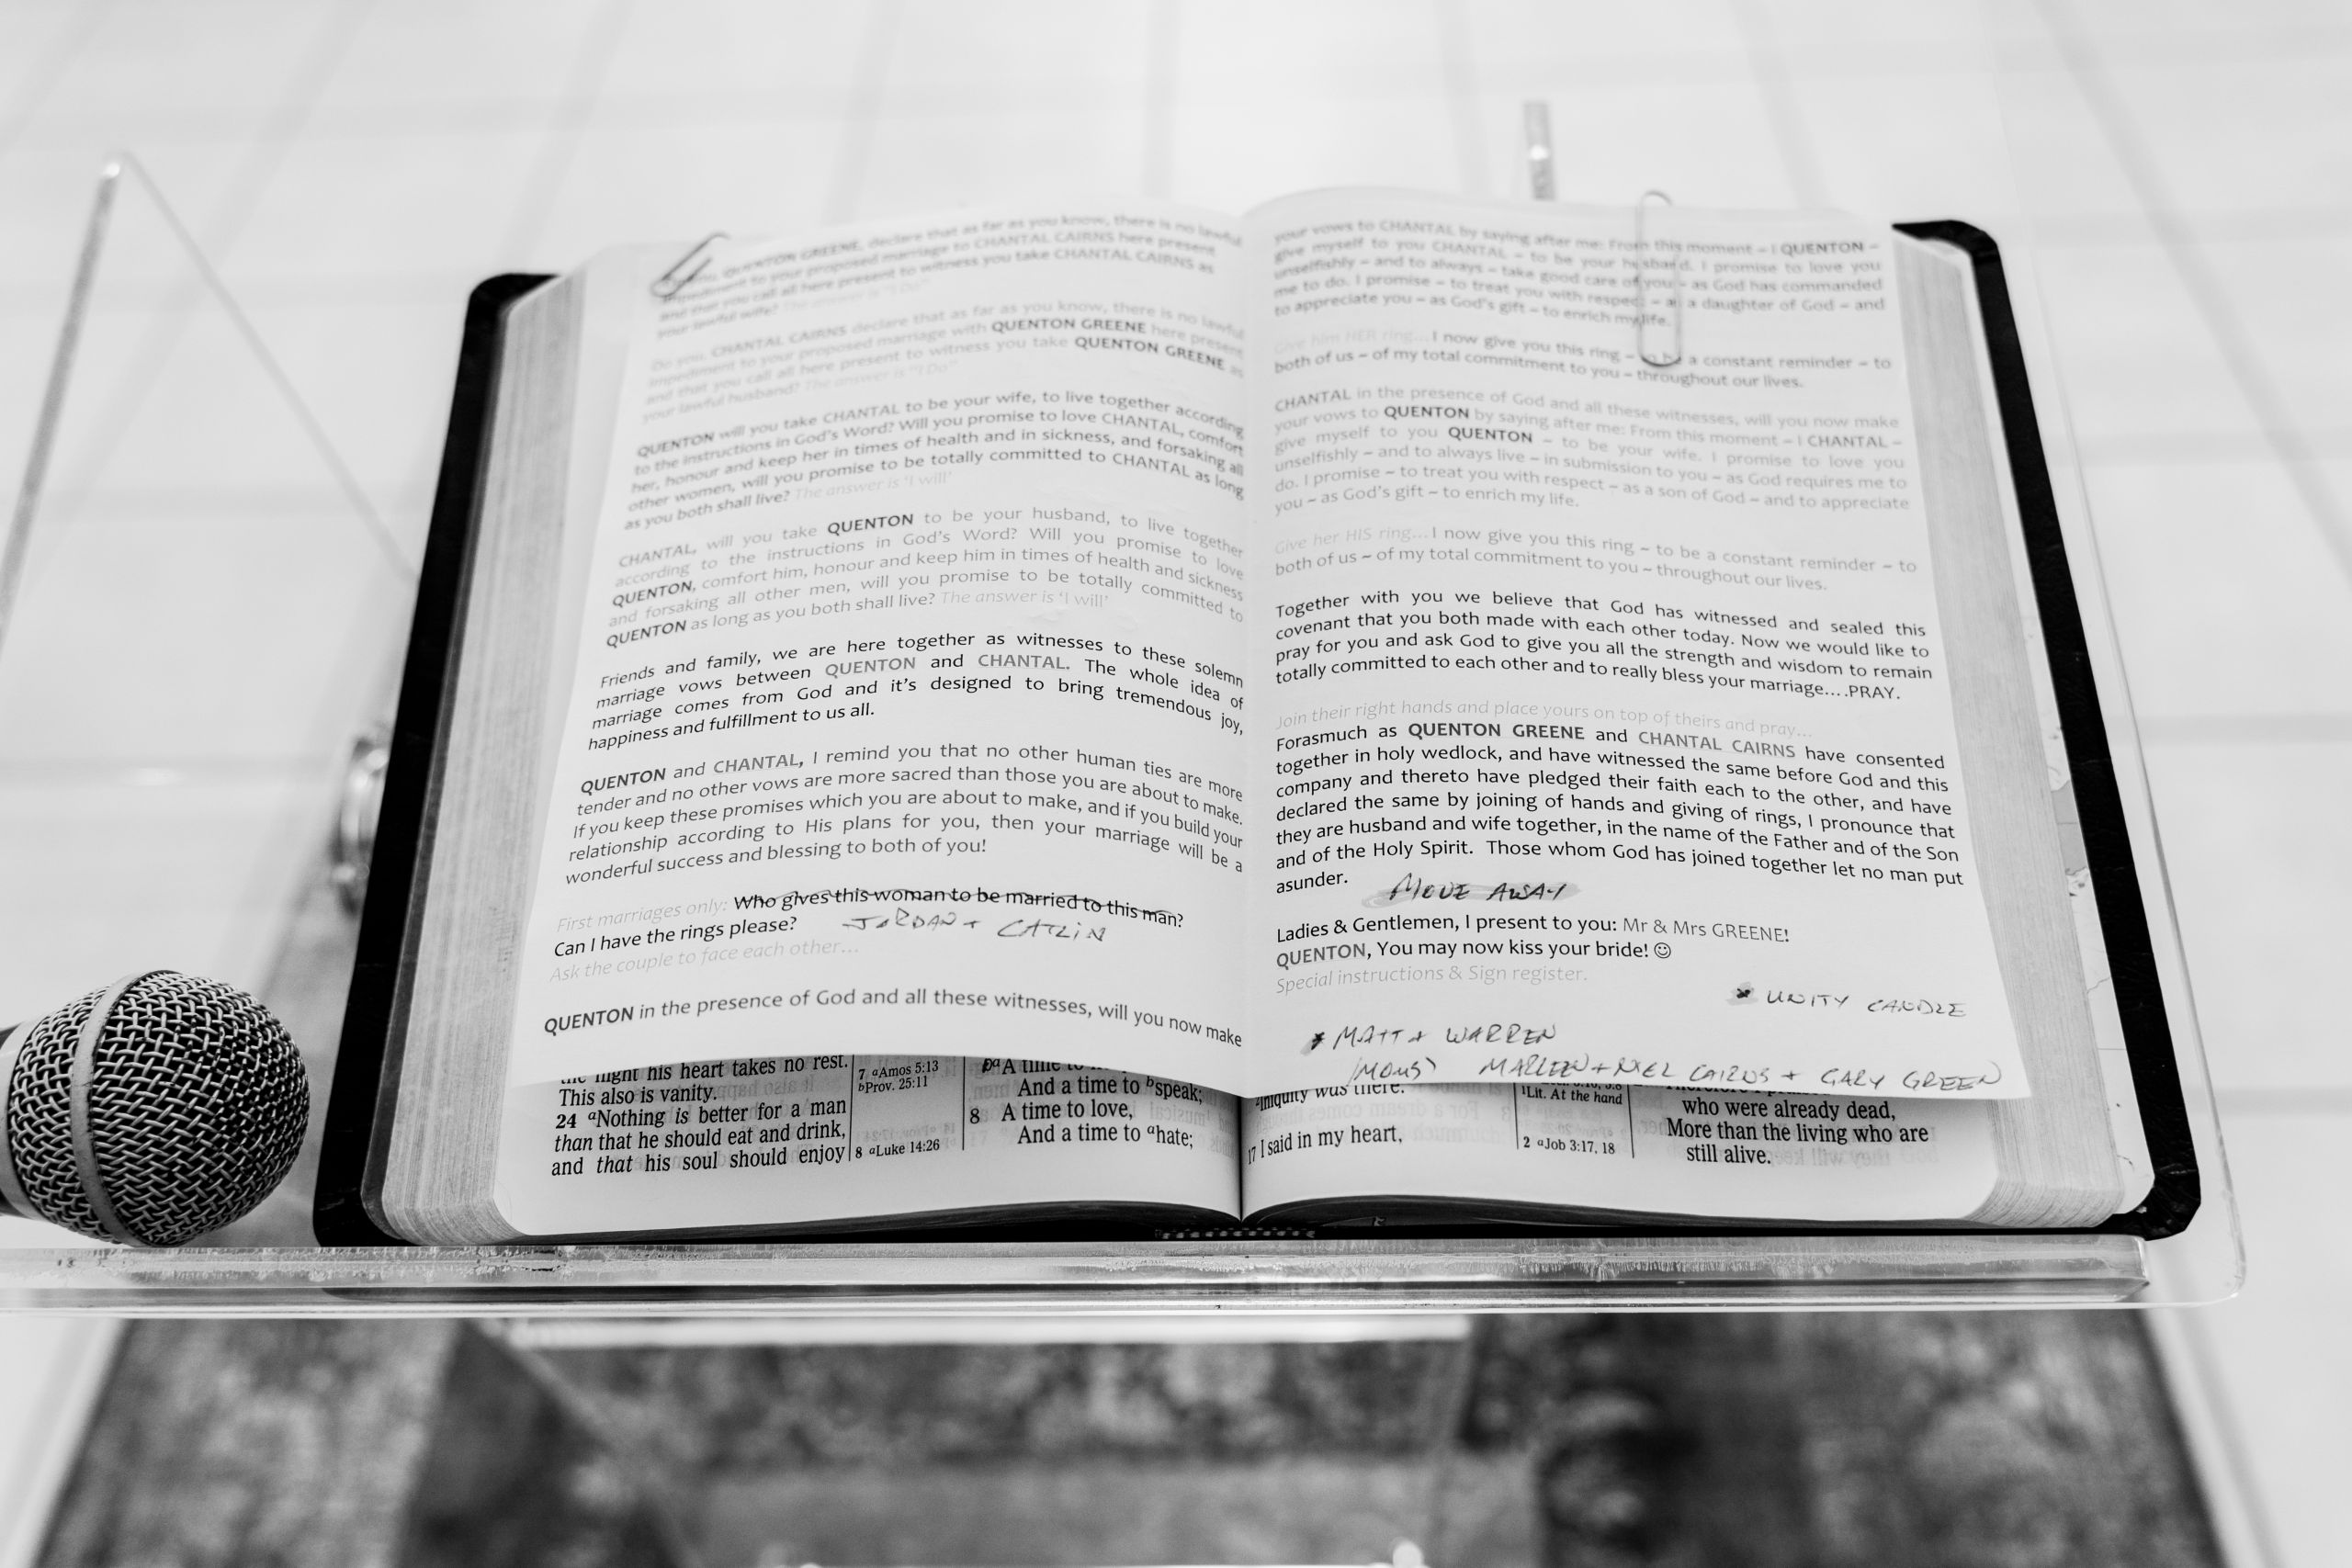 you, QUENTON GREENE, declare that as far as you know, there is no lawful
impediment to your proposed marriage to CHANTAL CAIRNS here present
and that you call all here present to witness you take CHANTAL CAIRNS as
your lawful wife? The answer is "I Do"
Do you, CHANTAL CAIRNS declare that as far as you know, there is no lawful
impediment to your proposed marriage with QUENTON GREENE here present
and that you call all here present to witness you take QUENTON GREENE as
your lawful husband? The answer is "I Do"
QUENTON will you take CHANTAL to be your wife, to live together according
to the instructions in God's Word? Will you promise to love CHANTAL, comfort
her, honour and keep her in times of health and in sickness, and forsaking all
other women, will you promise to be totally committed to CHANTAL as long
as you both shall live? The answer is 'I will'
CHANTAL, will you take QUENTON to be your husband, to live together
according to the instructions in God's Word? Will you promise to love
QUENTON, comfort him, honour and keep him in times of health and sickness
and forsaking all other men, will you promise to be totally committed to
QUENTON as long as you both shall live? The answer is 'I will'
Friends and family, we are here together as witnesses to these solemn
marriage vows between QUENTON and CHANTAL. The whole idea of
marriage comes from God and it's designed to bring tremendous joy,
happiness and fulfillment to us all.
QUENTON and CHANTAL, I remind you that no other human ties are more
tender and no other vows are more sacred than those you are about to make.
If you keep these promises which you are about to make, and if you build your
relationship according to His plans for you, then your marriage will be a
wonderful success and blessing to both of you!
First marriages only: Who gives this woman to be married to this man?
Can I have the rings please? JORDAN + CATLIN
Ask the couple to face each other...
QUENTON in the presence of God and all these witnesses, will you now make
your vows to CHANTAL by saying after me: From this moment – I QUENTON –
give myself to you CHANTAL – to be your husband. I promise to love you
unselfishly – and to always – take good care of you – as God has commanded
me to do. I promise – to treat you with respect – as a daughter of God – and
to appreciate you – as God's gift – to enrich my life.
Give him HER ring... I now give you this ring – to be a constant reminder – to
both of us – of my total commitment to you – throughout our lives.
CHANTAL in the presence of God and all these witnesses, will you now make
your vows to QUENTON by saying after me: From this moment – I CHANTAL –
give myself to you QUENTON – to be your wife. I promise to love you
unselfishly – and to always live – in submission to you – as God requires me to
do. I promise – to treat you with respect – as a son of God – and to appreciate
you – as God's gift – to enrich my life.
Give her HIS ring... I now give you this ring – to be a constant reminder – to
both of us – of my total commitment to you – throughout our lives.
Together with you we believe that God has witnessed and sealed this
covenant that you both made with each other today. Now we would like to
pray for you and ask God to give you all the strength and wisdom to remain
totally committed to each other and to really bless your marriage....PRAY.
Join their right hands and place yours on top of theirs and pray...
Forasmuch as QUENTON GREENE and CHANTAL CAIRNS have consented
together in holy wedlock, and have witnessed the same before God and this
company and thereto have pledged their faith each to the other, and have
declared the same by joining of hands and giving of rings, I pronounce that
they are husband and wife together, in the name of the Father and of the Son
and of the Holy Spirit. Those whom God has joined together let no man put
asunder. MOVE AWAY
Ladies & Gentlemen, I present to you: Mr & Mrs GREENE!
QUENTON, You may now kiss your bride! ☺
Special instructions & Sign register.
* UNITY CANDLE
* MATT + WARREN
(MOMS) MARLEEN + NXEL CAIRNS + GARY GREEN
the night his heart takes no rest.
This also is vanity.
24 aNothing is better for a man
than that he should eat and drink,
and that his soul should enjoy
7 aAmos 5:13
bProv. 25:11
8 aLuke 14:26
A time to
And a time to bspeak;
8 A time to love,
And a time to ahate;
iniquity was there.
17 I said in my heart,
1Lit. At the hand
2 aJob 3:17, 18
who were already dead,
More than the living who are
still alive.